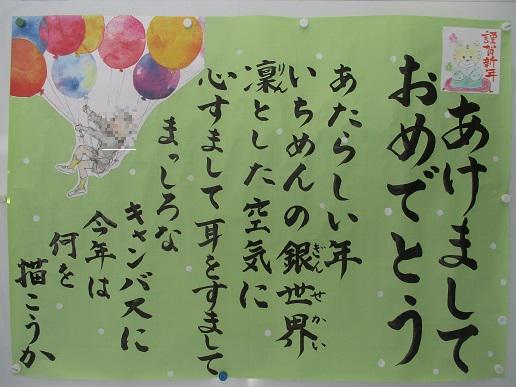 謹賀新年
あけまして
おめでとう
あたらしい年
いちめんの銀世界
ぎん せかい
凛とした空気に
りん
心すまして耳をすまして
まっしろな
キャンバスに
今年は
何を
描こうか